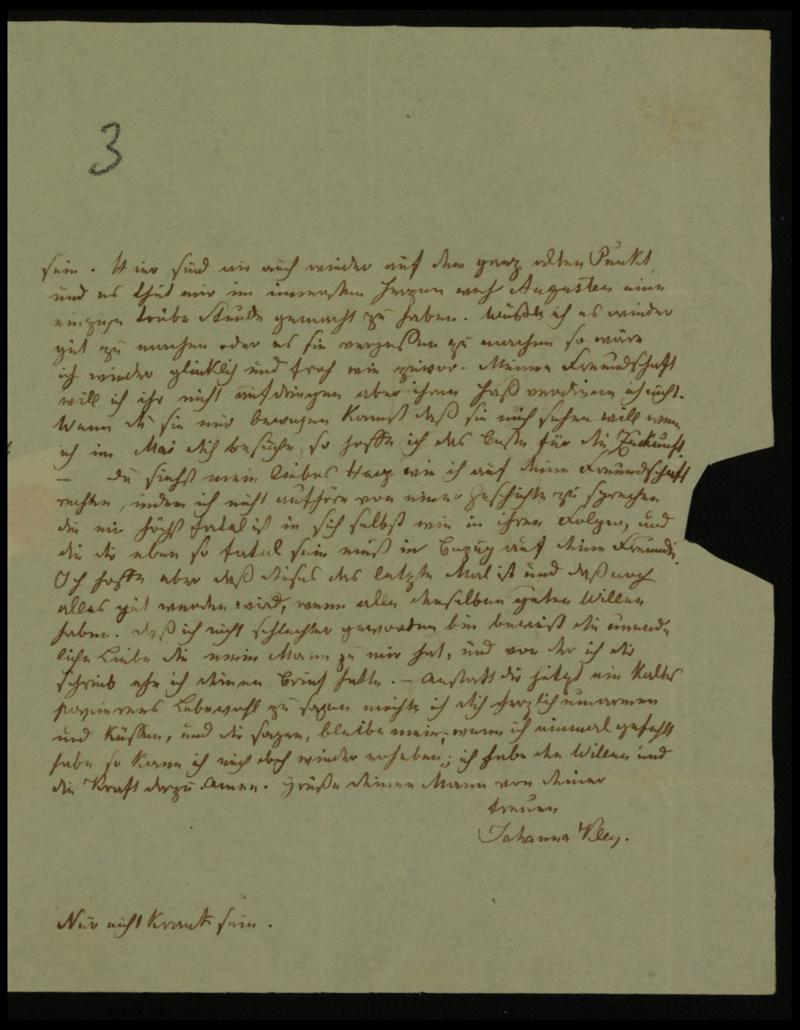 3
sein. Hier sind wir auch wieder auf dem ganz alten Punkt
und es thut mir im innersten Herzen weh Augusten eine
einzige trübe Stunde gemacht zu haben. Wüßte ich es wieder
gut zu machen oder es sie vergessen zu machen so wäre
ich wieder glücklich und froh wie zuvor. Meine Freundschaft
will ich ihr nicht aufdringen aber ihren Haß verdiene ich nicht.
Wenn du sie nur bewegen kannst daß sie mich sehen will wenn
ich im Mai dich besuche, so hoffe ich das beste für die Zukunft
— du siehst mein liebes Herz wie ich auf deine Freundschaft
rechne, indem ich nicht aufhöre von einer Geschichte zu sprechen
die mir höchst fatal ist in sich selbst wie in ihren Folgen, und
die dir eben so fatal sein muß in Bezug auf deine Freundin.
Ich hoffe aber daß dieses das letzte Mal ist und daß noch
alles gut werden wird, wenn alle denselben guten Willen
haben. Daß ich nicht schlechter geworden bin beweist die unend-
liche Liebe die mein Mann zu mir hat, und von der ich dir
schrieb ehe ich deinen Brief hatte. — Anstatt dir jetzt ein kaltes
Lebewohl zu sagen möchte ich dich herzlich umarmen
und küssen, und dir sagen, bleibe mein; wenn ich einmal gefehlt
habe so kann ich mich doch wieder erheben; ich habe den Willen und
die Kraft dazu. Amen. Grüße deinen Mann von deiner
treuen
Johanna
Nur nicht krank sein.